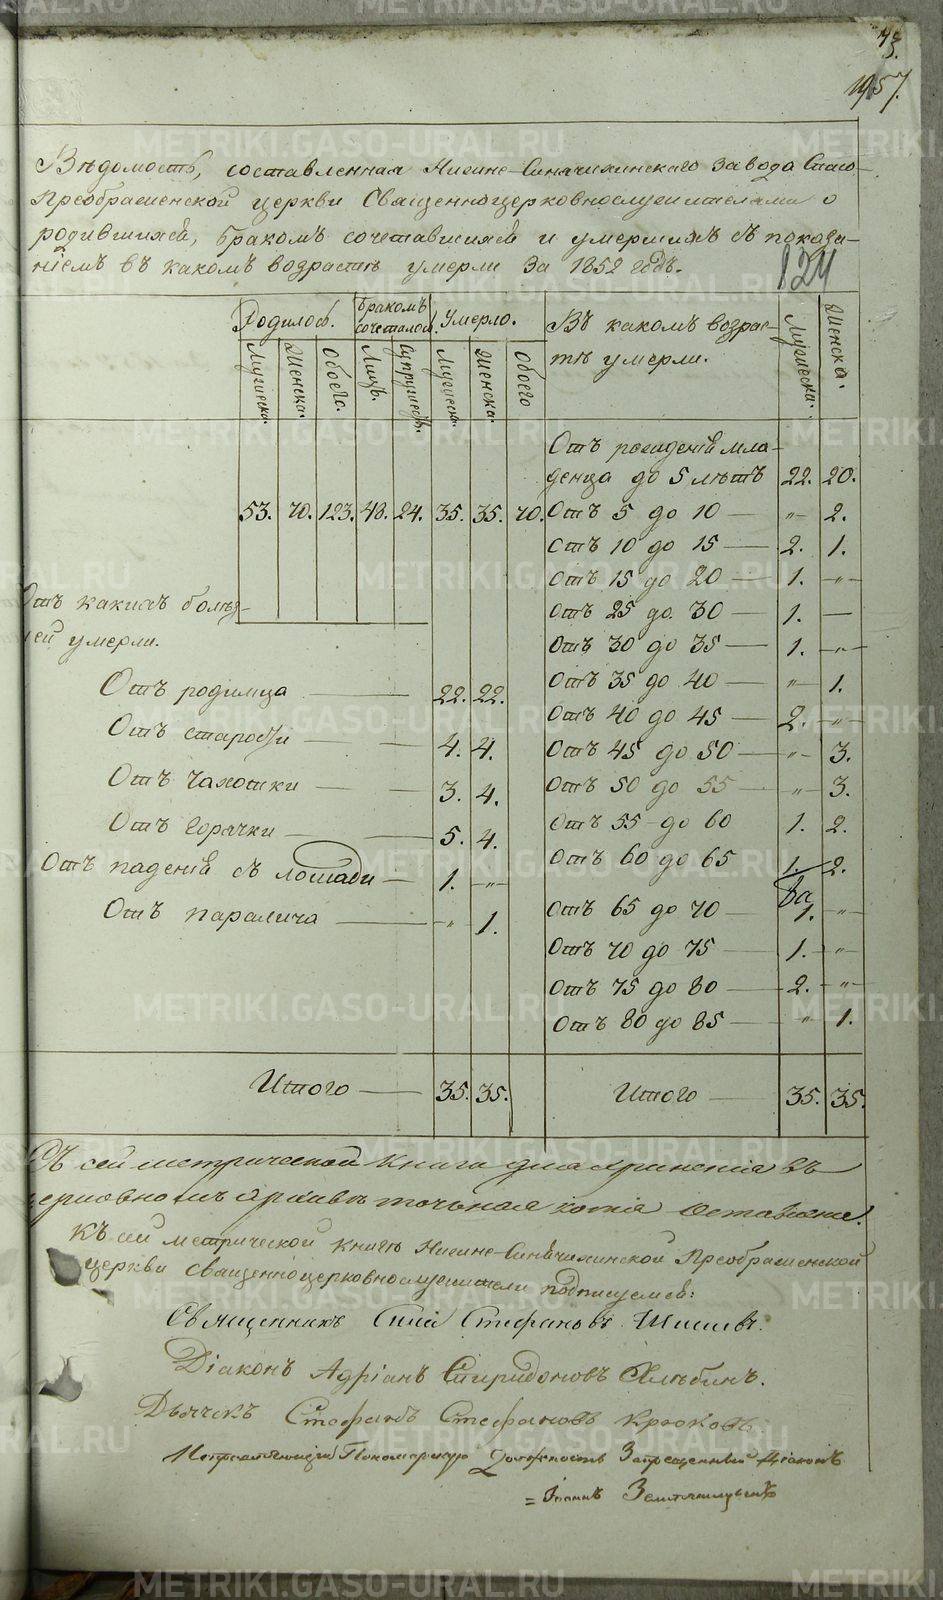 73.
1957.
Вѣдомость, составленная Нижне-Синячихинскаго Завода Спасо-
Преображенской церкви Священноцерковнослужителями о
родившихся, бракомъ сочетавшихся и умершихъ съ показа-
ніемъ въ какомъ возрастѣ умерли за 1852 годъ.
124
Родилось. Бракомъ сочеталось. Умерло. Въ какомъ возрас-
тѣ умерли. Мужеска. Женска.
Мужеска. Женска. Обоего. Лицъ. Супружествъ. Мужеска. Женска. Обоего
Отъ рожденія мла-
денца до 5 лѣтъ 22. 20.
53. 70. 123. 48. 24. 35. 35. 70. Отъ 5 до 10 — „ 2.
Отъ 10 до 15 — 2. 1.
Отъ 15 до 20 — 1. „
Отъ какихъ болѣз-
ней умерли.
Отъ 25 до 30 — 1. —
Отъ 30 до 35 — 1. „
Отъ родимца — 22. 22. Отъ 35 до 40 — „ 1.
Отъ старости — 4. 4. Отъ 40 до 45 — 2. „
Отъ 45 до 50 — „ 3.
Отъ Чахотки — 3. 4. Отъ 50 до 55 — „ 3.
Отъ горячки — 5. 4. Отъ 55 до 60 1. 2.
Отъ паденія съ лошади — 1. „ Отъ 60 до 65 1. 2.
Отъ паралича — „ 1. Отъ 65 до 70 — 1. „
Отъ 70 до 75 — 1. „
Отъ 75 до 80 — 2. „
Отъ 80 до 85 — „ 1.
Итого — 35. 35. Итого — 35. 35.
Съ сей метрической книги для храненія въ
церковномъ Архивѣ точьная копія оставлена.
Къ сей метрической книгѣ Нижне-Синячихинской Преображенской
церкви священноцерковнослужители подписуемся:
Священникъ Стефановъ
Діаконъ Адріанъ Спиридоновъ
Дьячекъ Стефанъ Стефановъ Крюковъ
Исправляющій Пономарскую Должность Запрещенный Діаконъ
= Іоаннъ
METRIKI.GASO-URAL.RU